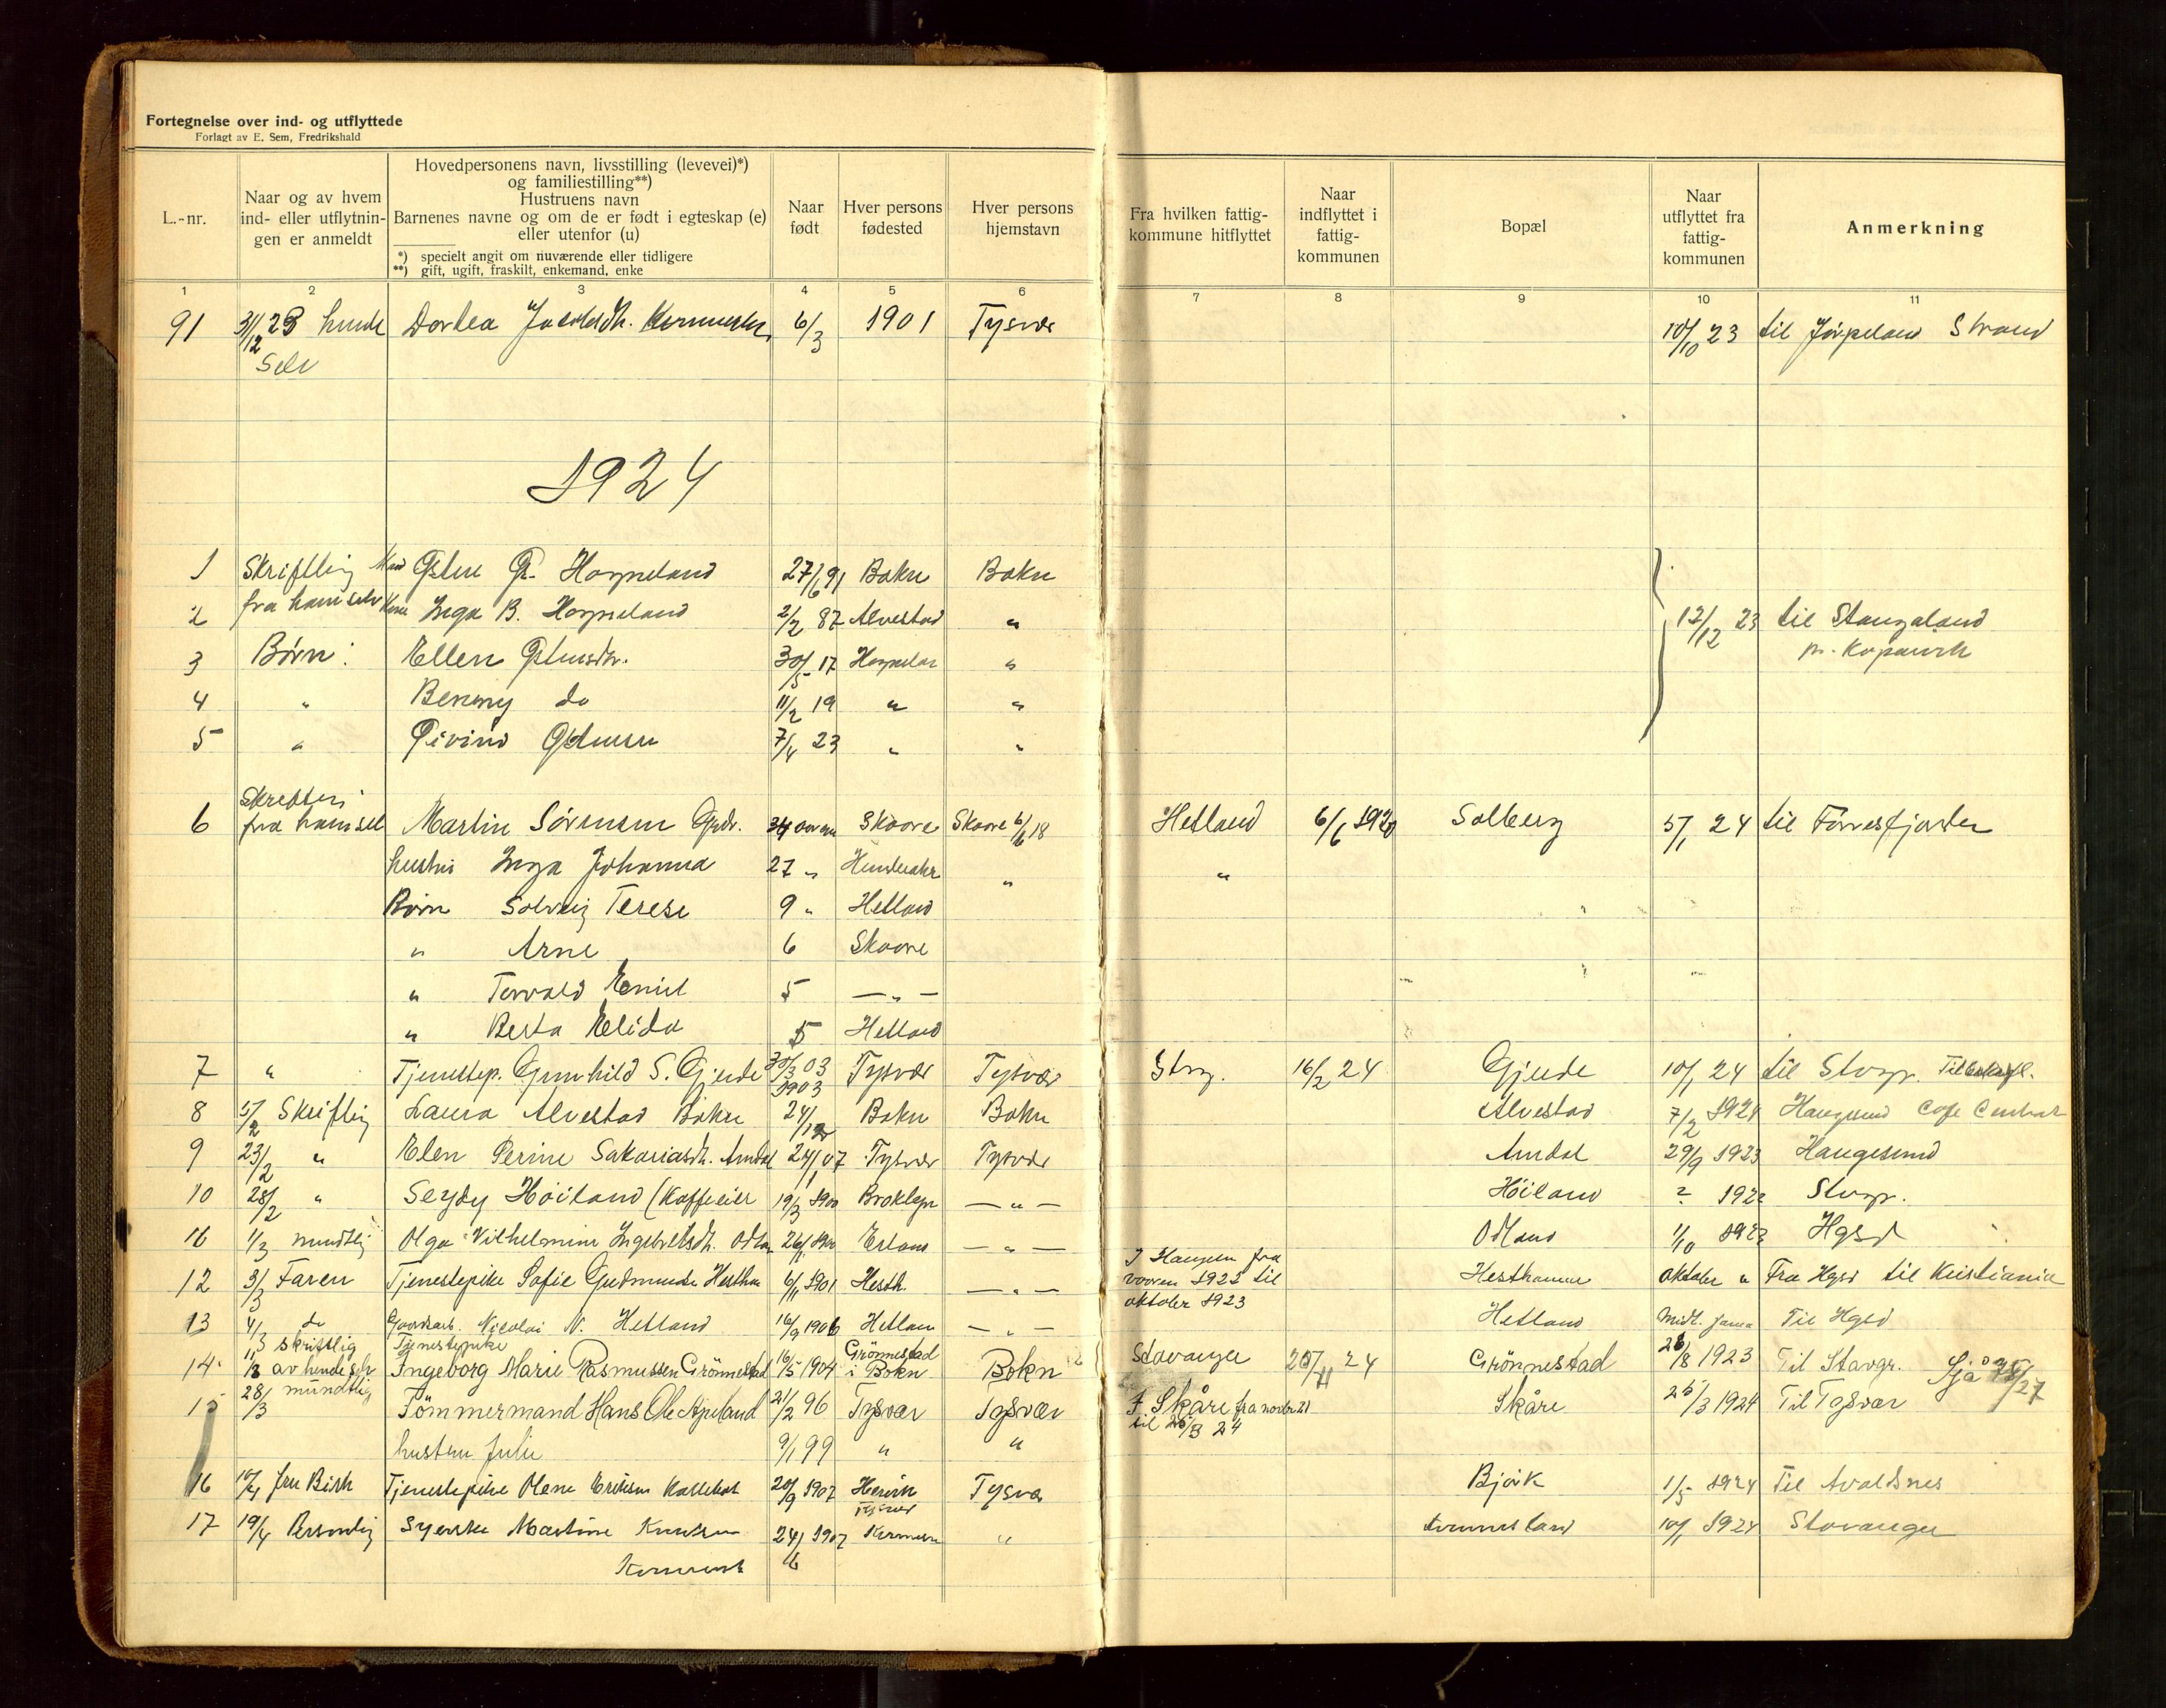 Fortegnelse over ind- og utflyttede
Forlagt av E. Sem, Fredrikshald
L.-nr.
Naar og av hvem ind- eller utflytnin-gen er anmeldt
Hovedpersonens navn, livsstilling (levevei)*)
og familiestilling**)
Hustruens navn
Barnenes navne og om de er født i egteskap (e)
eller utenfor (u)
*) specielt angit om nuværende eller tidligere
**) gift, ugift, fraskilt, enkemand, enke
Naar født
Hver persons fødested
Hver persons hjemstavn
Fra hvilken fattig-kommune hitflyttet
Naar indflyttet i fattig-kommunen
Bopæl
Naar utflyttet fra fattig-kommunen
Anmerkning
1 2 3 4 5 6 7 8 9 10 11
91 31/12 23 hende Dortea 6/3 1901 Tysvær 10/10 23 til Jörpeland Strand
Selv
1924
1 Skriftlig Man Østen Ø. Hognaland 27/6 91 Bokn Bokn
2 fra ham selv Kone Inga B. Hognaland 2/2 87 Alvestad " 12/12 23 til Stangaland
3 Børn: Ellen Østensdtr. 30/5 17 " pr. Kopervik
4 " Benny do 11/2 19 " "
5 " Øivind Østensen 7/4 23 " "
Skriftlig
6 fra ham selv Martin Sörensen 34 aar Skaare Skaare 6/6 18 Hetland 6/6 1920 Solberg 5/1 24 til Förresfjorden
hustru Inga Johanna 27 " " "
Børn Solveig Terese 9 " Hetland
" Arne 6 Skaare
" Torvald Emil 5 — " —
" Berta Elida 5 Hetland
7 " Tjenestep. Gunhild S. Gjerde 30/3 03 Tysvær Tysvær Stvgr. 16/2 24 Gjerde 10/1 24 til Stvgr.
1903
8 5/2 Skriftlig Laura Alvestad Bokn 24/12 Bokn Bokn Alvestad 7/2 1924 Haugesund Cafe Central
9 23/2 " Elen Perine Sakariasdtr. Amdal 24/1 07 Tysvær Tysvær Amdal 29/9 1923 Haugesund
10 28/2 " Höiland (Kaffeeier 19/3 1900 — " — Höiland ? 1922 Stvgr.
16 1/3 mundtlig Olga Vilhelmine Ingebretsdtr. — " — 1/10 1923 Hgsd
12 3/3 Faren Tjenestepike Sofie 6/11 1901 Hesth. — " — I Haugesn fra
vaaren 1922 til
oktober 1923 Hesthammer oktober " Fra Hgsd til Kristiania
13 4/3 do Gaardsarb. Nicolai N. Hetland 16/9 1906 Hetlan — " — Hetland Midt. Til Hgsd
skriftlig Tjenestepike Grönnestad
14 11/3 av hende selv Ingeborg Marie Rasmussen Grönnestad 16/5 1904 i Bokn Bokn Stavanger 25/11 24 Grönnestad 28/8 1923 Til Stavgr. Sjå
15 28/3 mundtlig Tömmermand Hans Ole Apeland 21/2 96 Tysvær Tysvær I Skåre fra novbr. 21
til 25/3 24 Skåre 25/3 1924 Til Tysvær
hustru Julie 9/1 99 " "
16 10/4 fru Birk Tjenestepike Olene 20/9 1907 Hervik
Tysvær Tysvær Bjoik 1/5 1924 Til Avaldsnes
17 19/4 Personlig Syerske Martine Knutsen 24/6 1907 " 10/1 1924 Stavanger